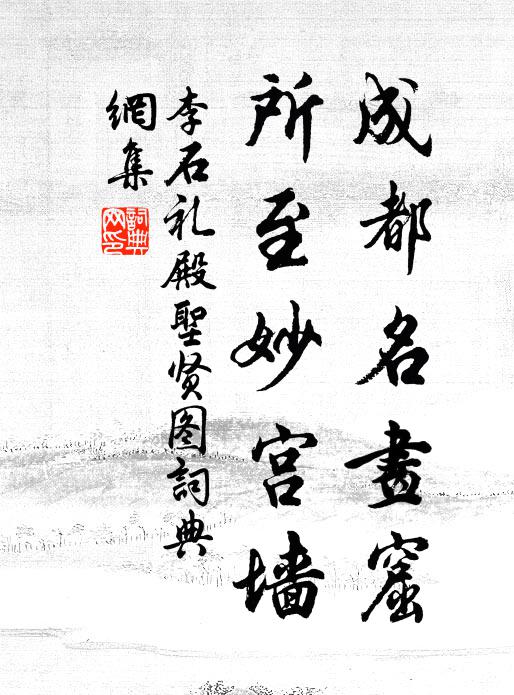 成都名畫窟
所至妙宫墙
李石礼殿聖贤图詞典
網集
詞典
网印